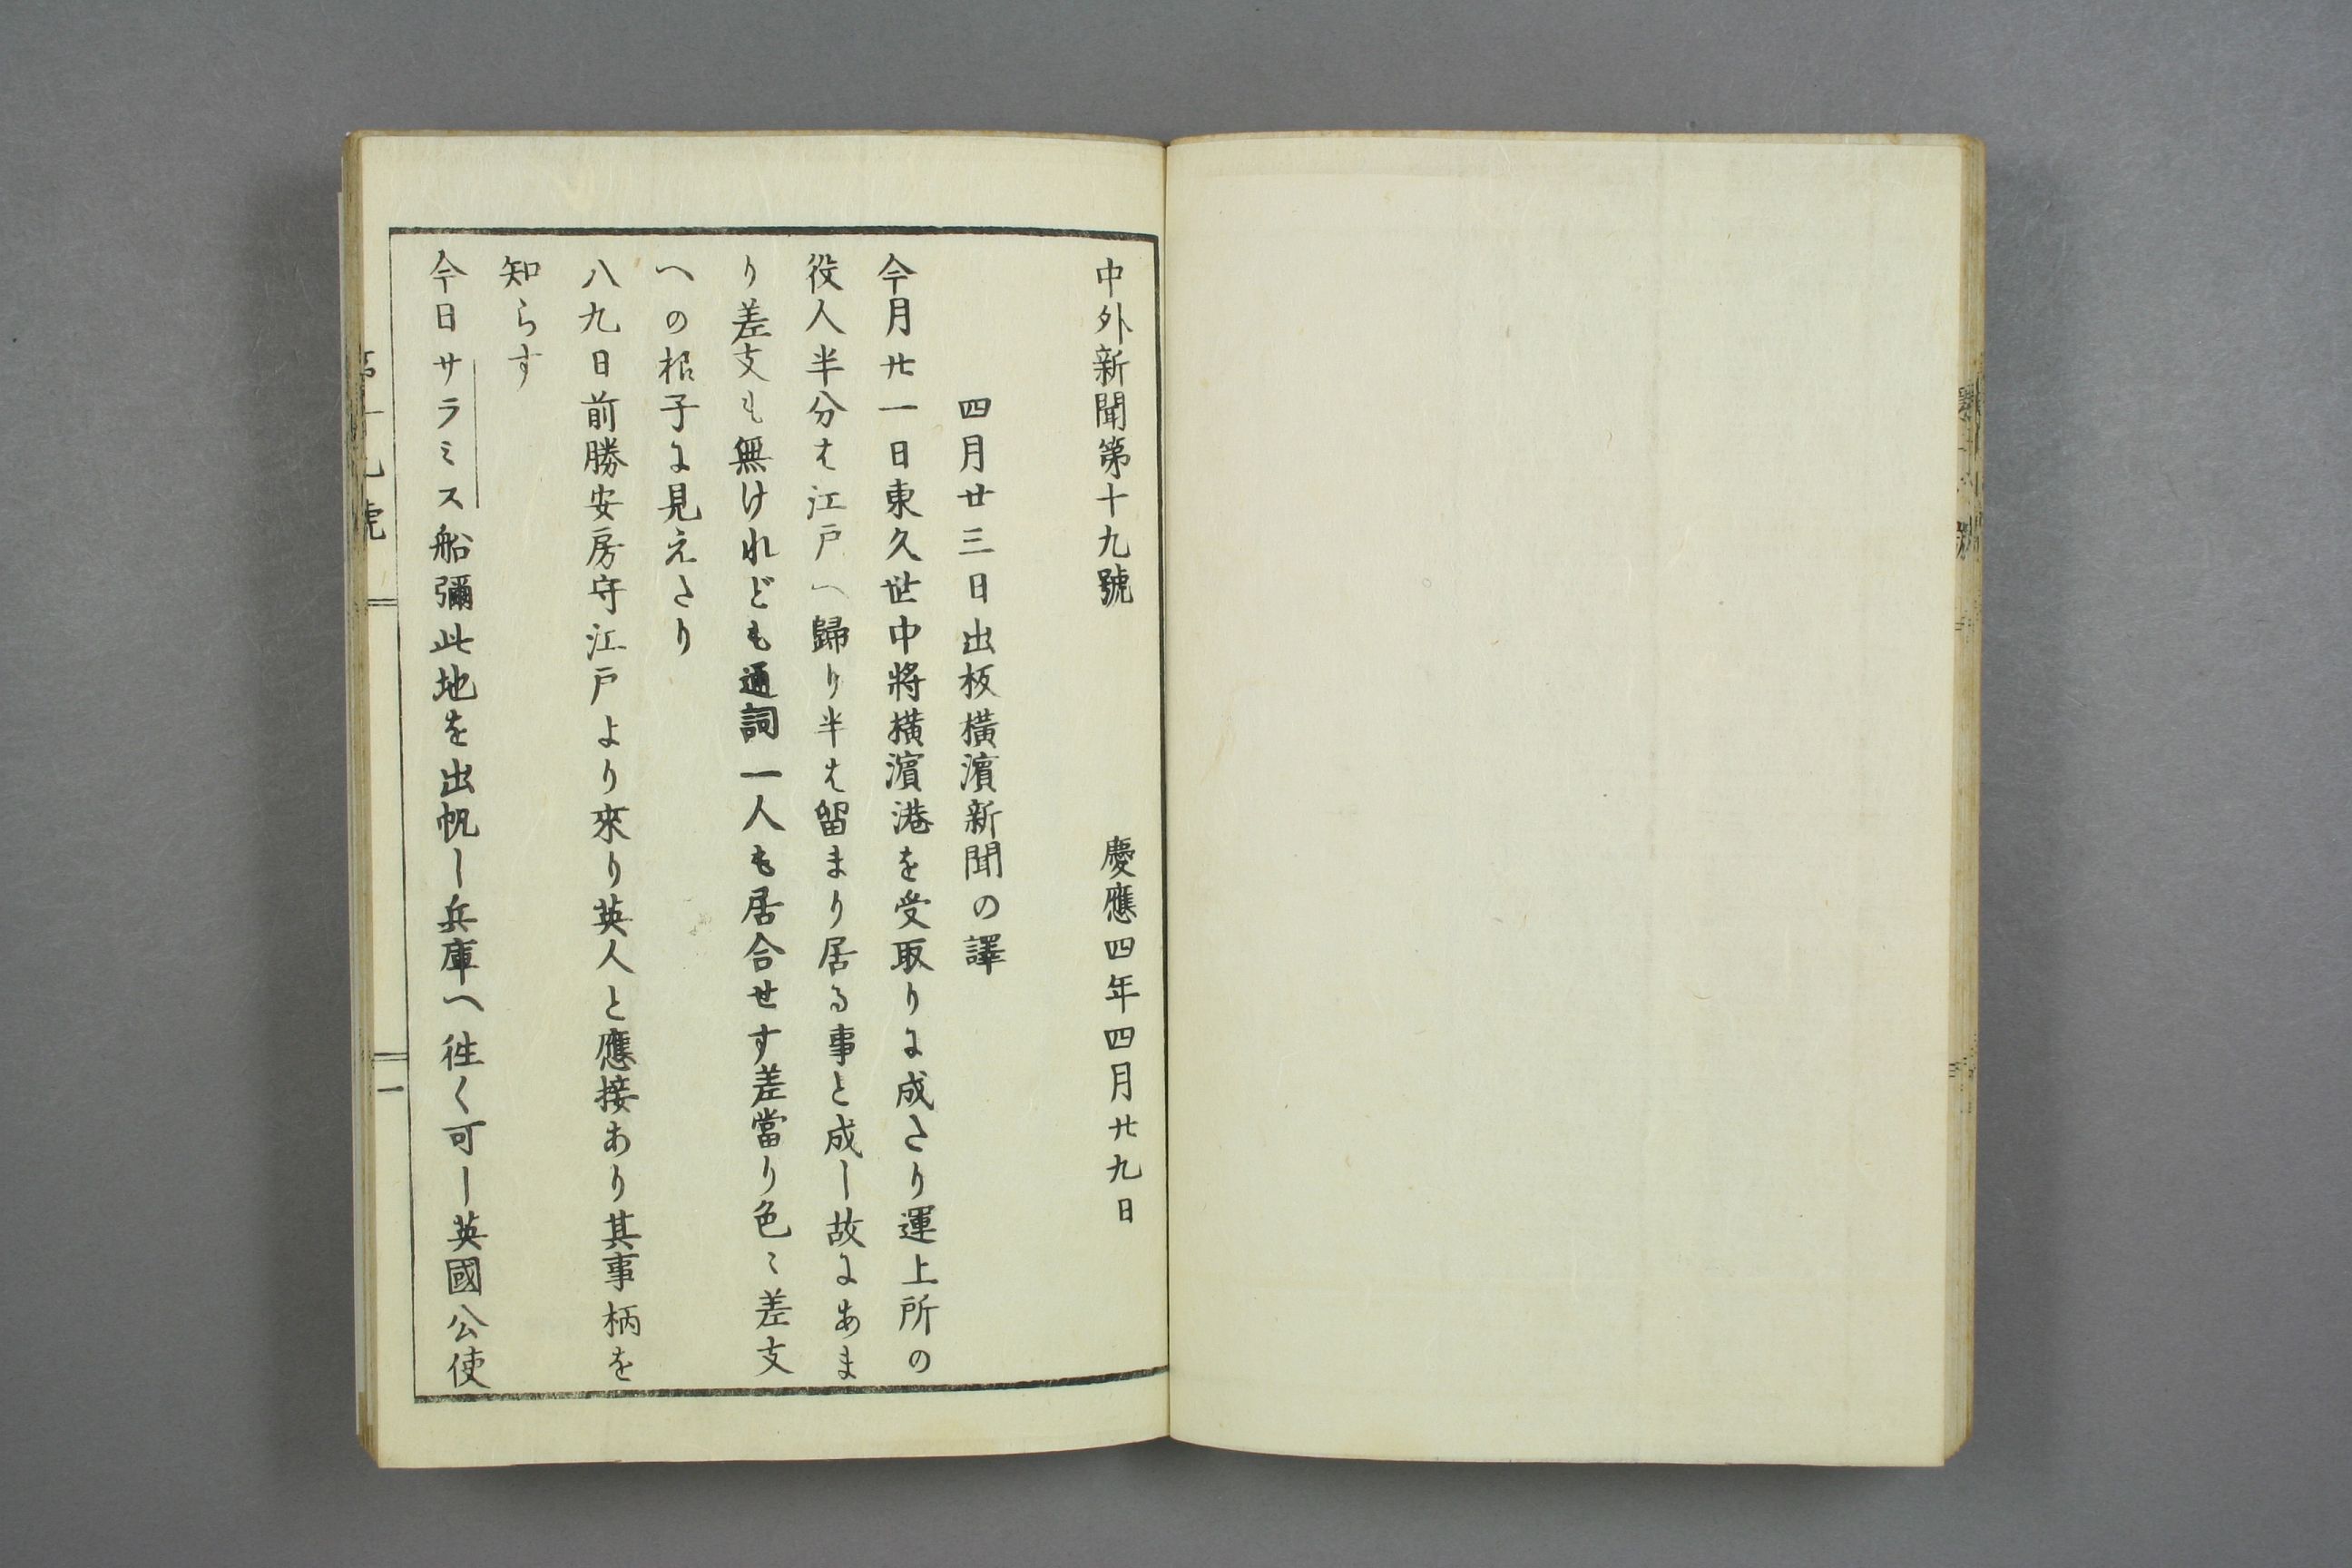 中外新聞第十九號　慶應四年四月廿九日
四月廿三日出板橫濱新聞の譯
今月廿一日東久世中將橫濱港を受取りに成たり運上所の
役人半分は江戸へ歸り半は留まり居る事と成し故にあま
り差支も無けれども通詞一人も居合せす差當り色〻差支
への樣子に見えたり
八九日前勝安房守江戸より來り英人と應接あり其事柄を
知らす
今日サラミス船彌此地を出帆し兵庫へ徃く可し英國公使
第十九號
一